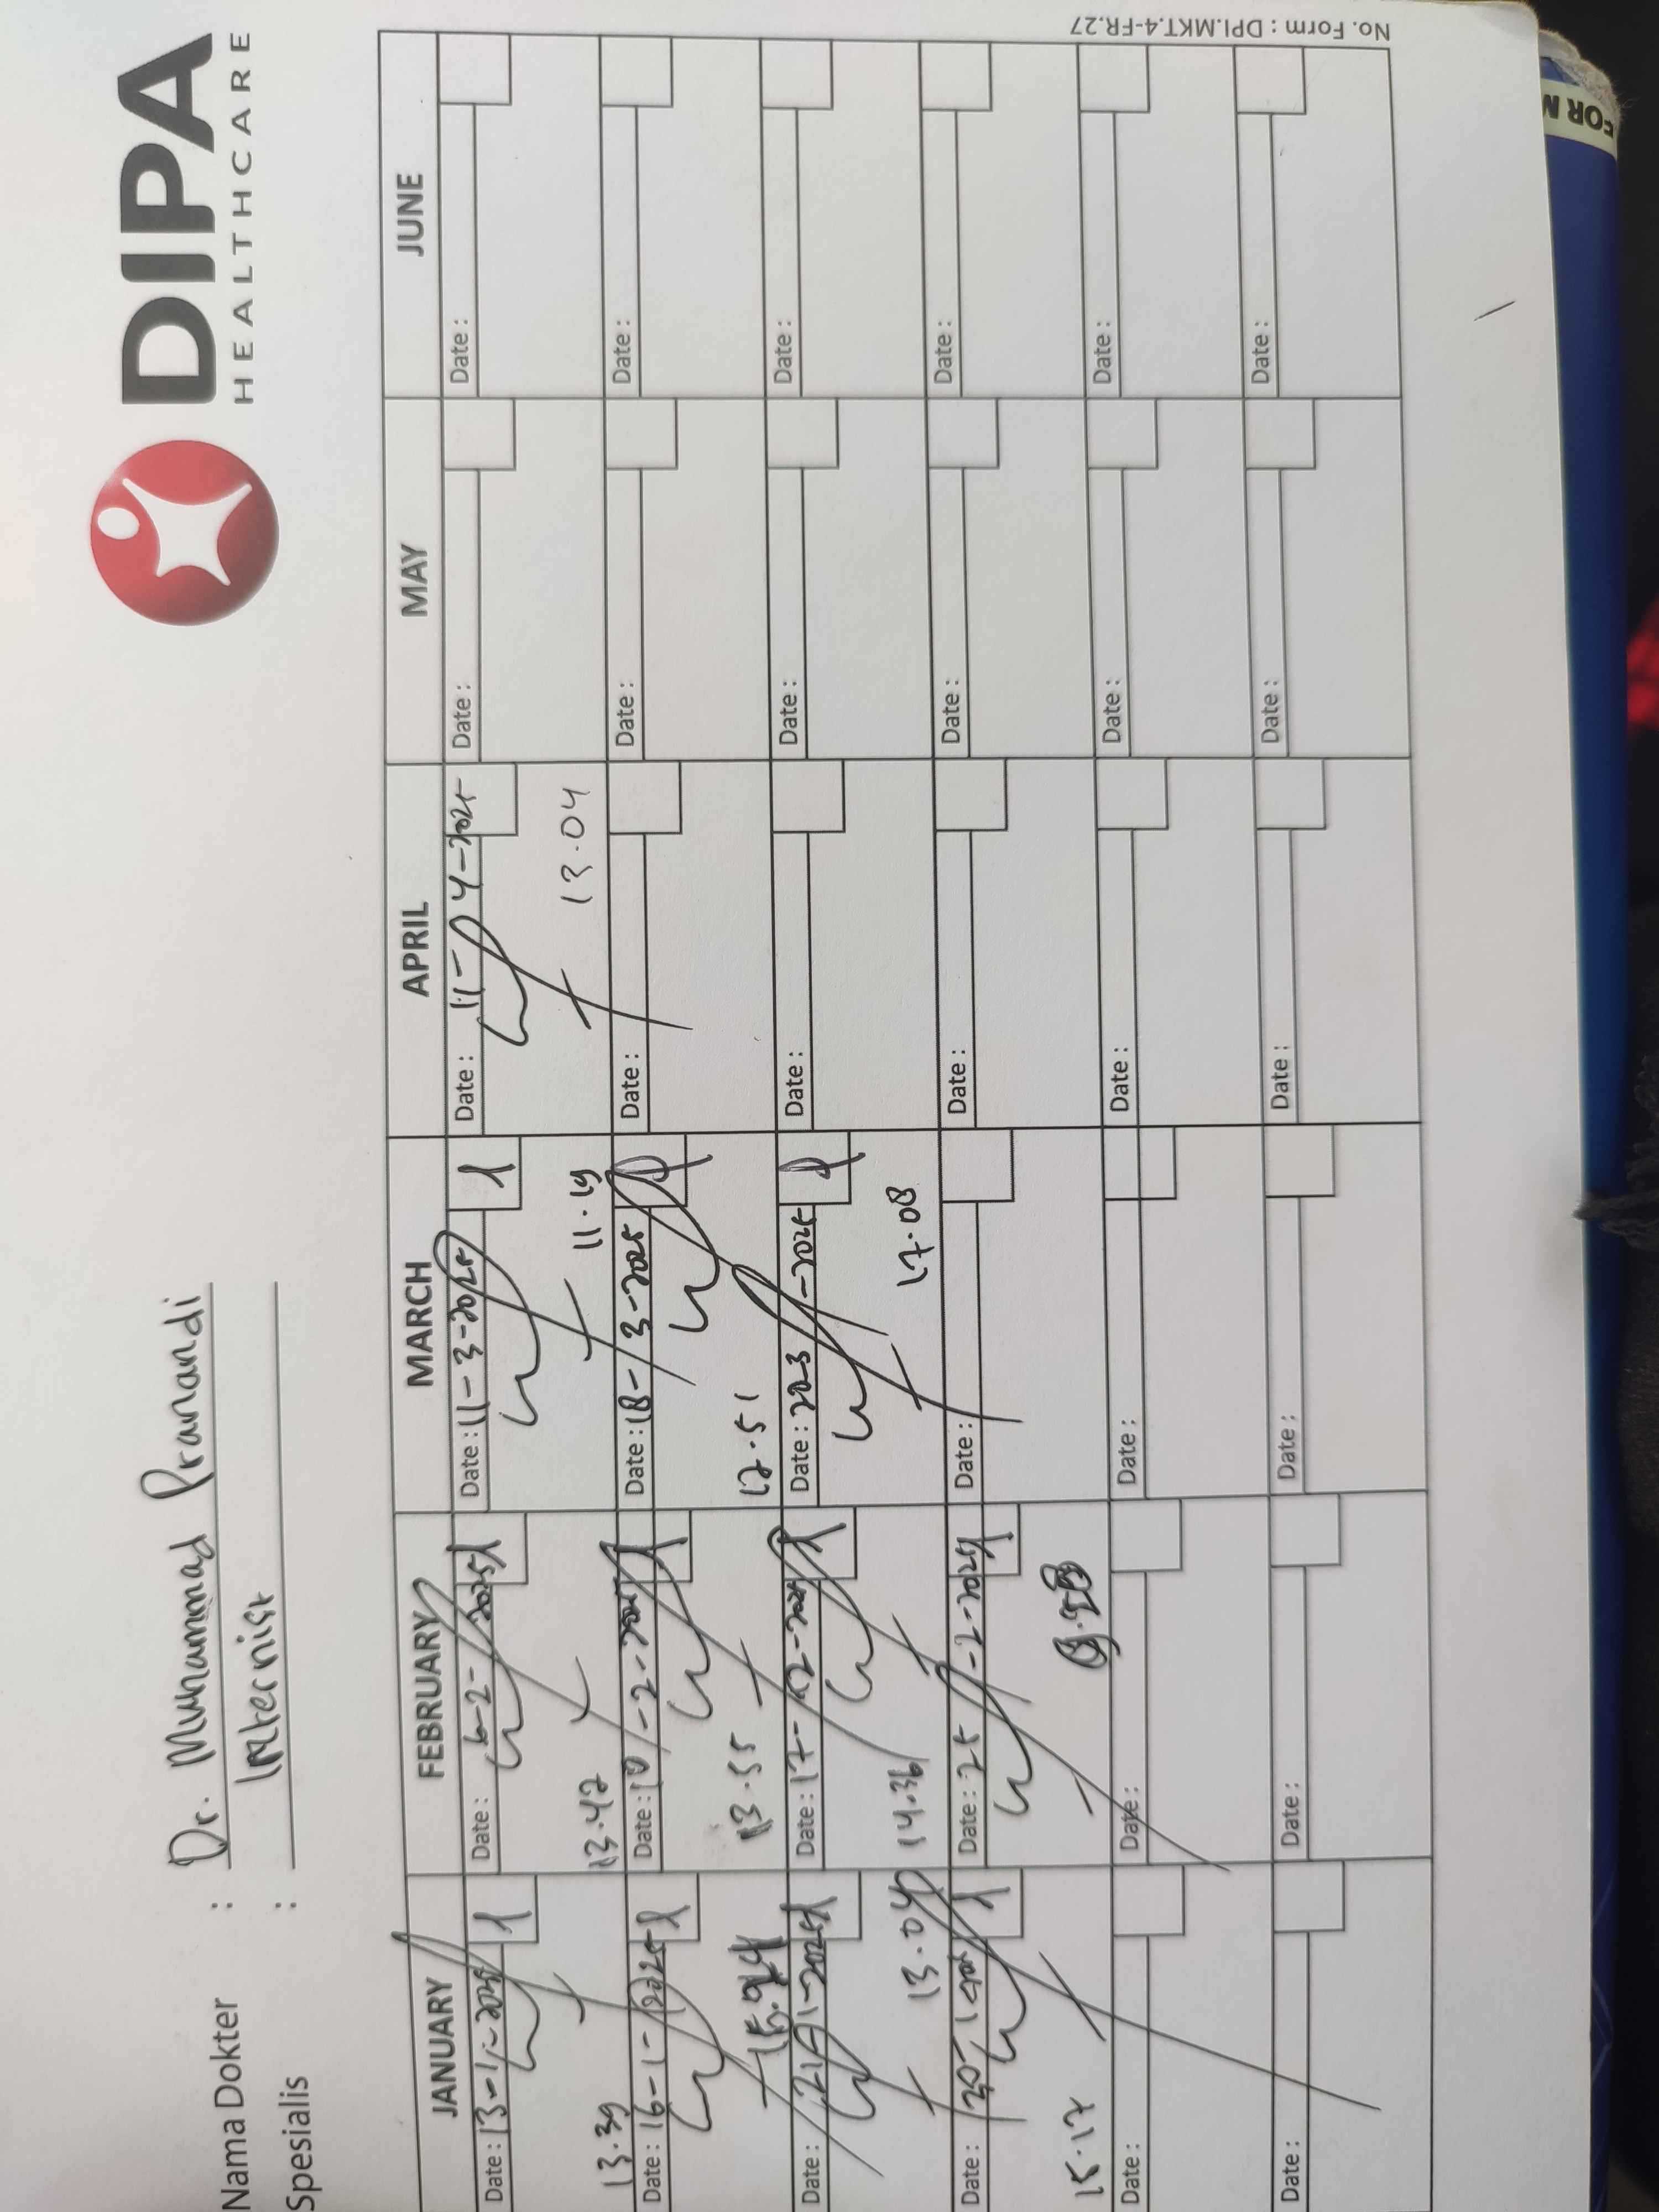 DIPA
HEALTHCARE
Nama Dokter : Dr. Muhammad Pranandi
Spesialis : Internist
JANUARY FEBRUARY MARCH APRIL MAY JUNE
Date : 13-1-2025 1 Date : 6-2-2025 1 Date : 11-3-2025 1 Date : 11-04-2025 Date : Date :
13.39 13.42 11.19 13.04
Date : 16-1-2025 1 Date : 10-2-2025 1 Date : 18-3-2025 Date : Date : Date :
13.55 12.51
Date : 21-1-2025 1 Date : 17-2-2025 1 Date : 20-3-2025 Date : Date : Date :
13.04 14.36 17.08
Date : 30-1-2025 1 Date : 25-2-2025 1 Date : Date : Date : Date :
15.17
Date : Date : Date : Date : Date : Date :
Date : Date : Date : Date : Date : Date :
No. Form : DPI.MKT.4-FR.27
FOR